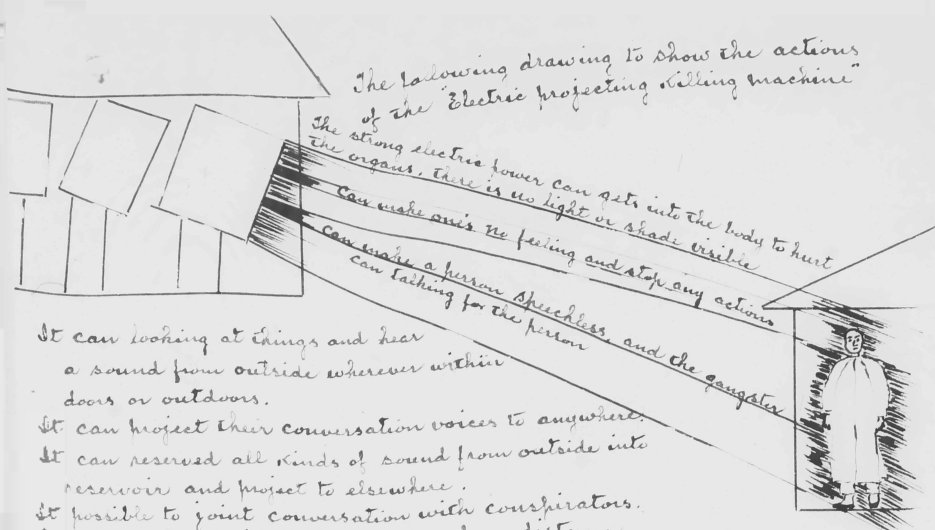 The following drawing to show the actions
of the "Electric projecting Killing machine"
The strong electric power can gets into the body to hurt
the organs, there is no light or shade visible
can make one's no feeling and stop any actions
can make a person speechless, and the gangster
can talking for the person
It can looking at things and hear
a sound from outside wherever within
doors or outdoors.
It can project their conversation voices to anywhere.
It can reserved all kinds of sound from outside into
reservoir and project to elsewhere.
It possible to joint conversation with conspirators.